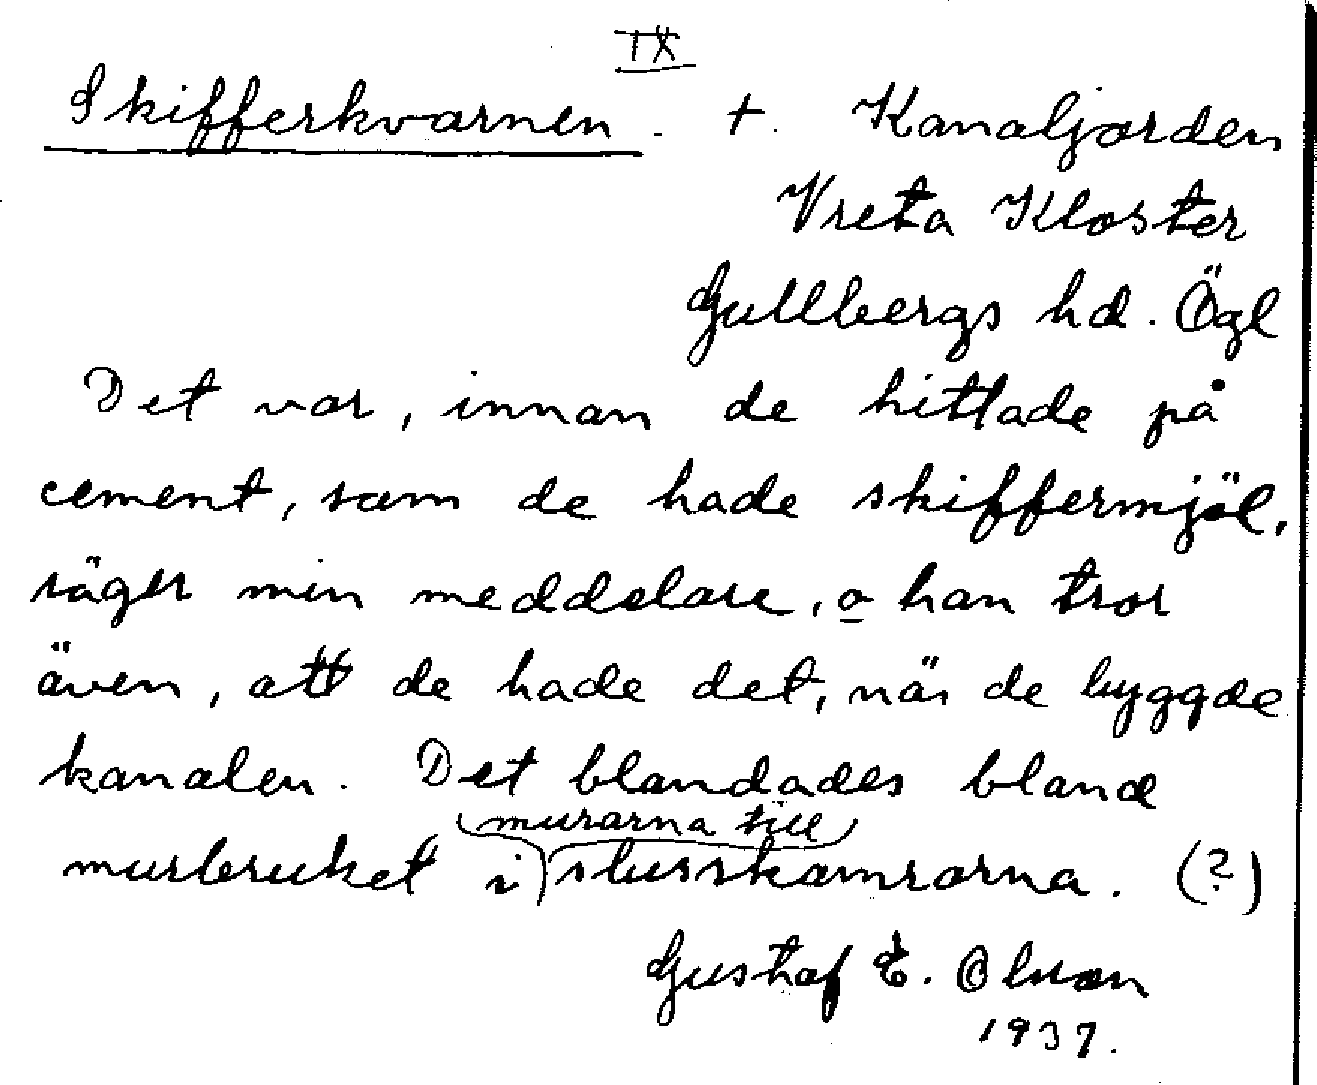 IX
Skifferkvarnen. +. Kanaljorden
Vreta Kloster
Gullbergs hd. Ögl
Det var, innan de hittade på
cement, som de hade skiffermjöl,
säger min meddelare, o han tror
även, att de hade det, när de byggde
kanalen. Det blandades bland
murarna till
murbruket i slusskamrarna. (?)
Gustaf E. Olsson
1937.